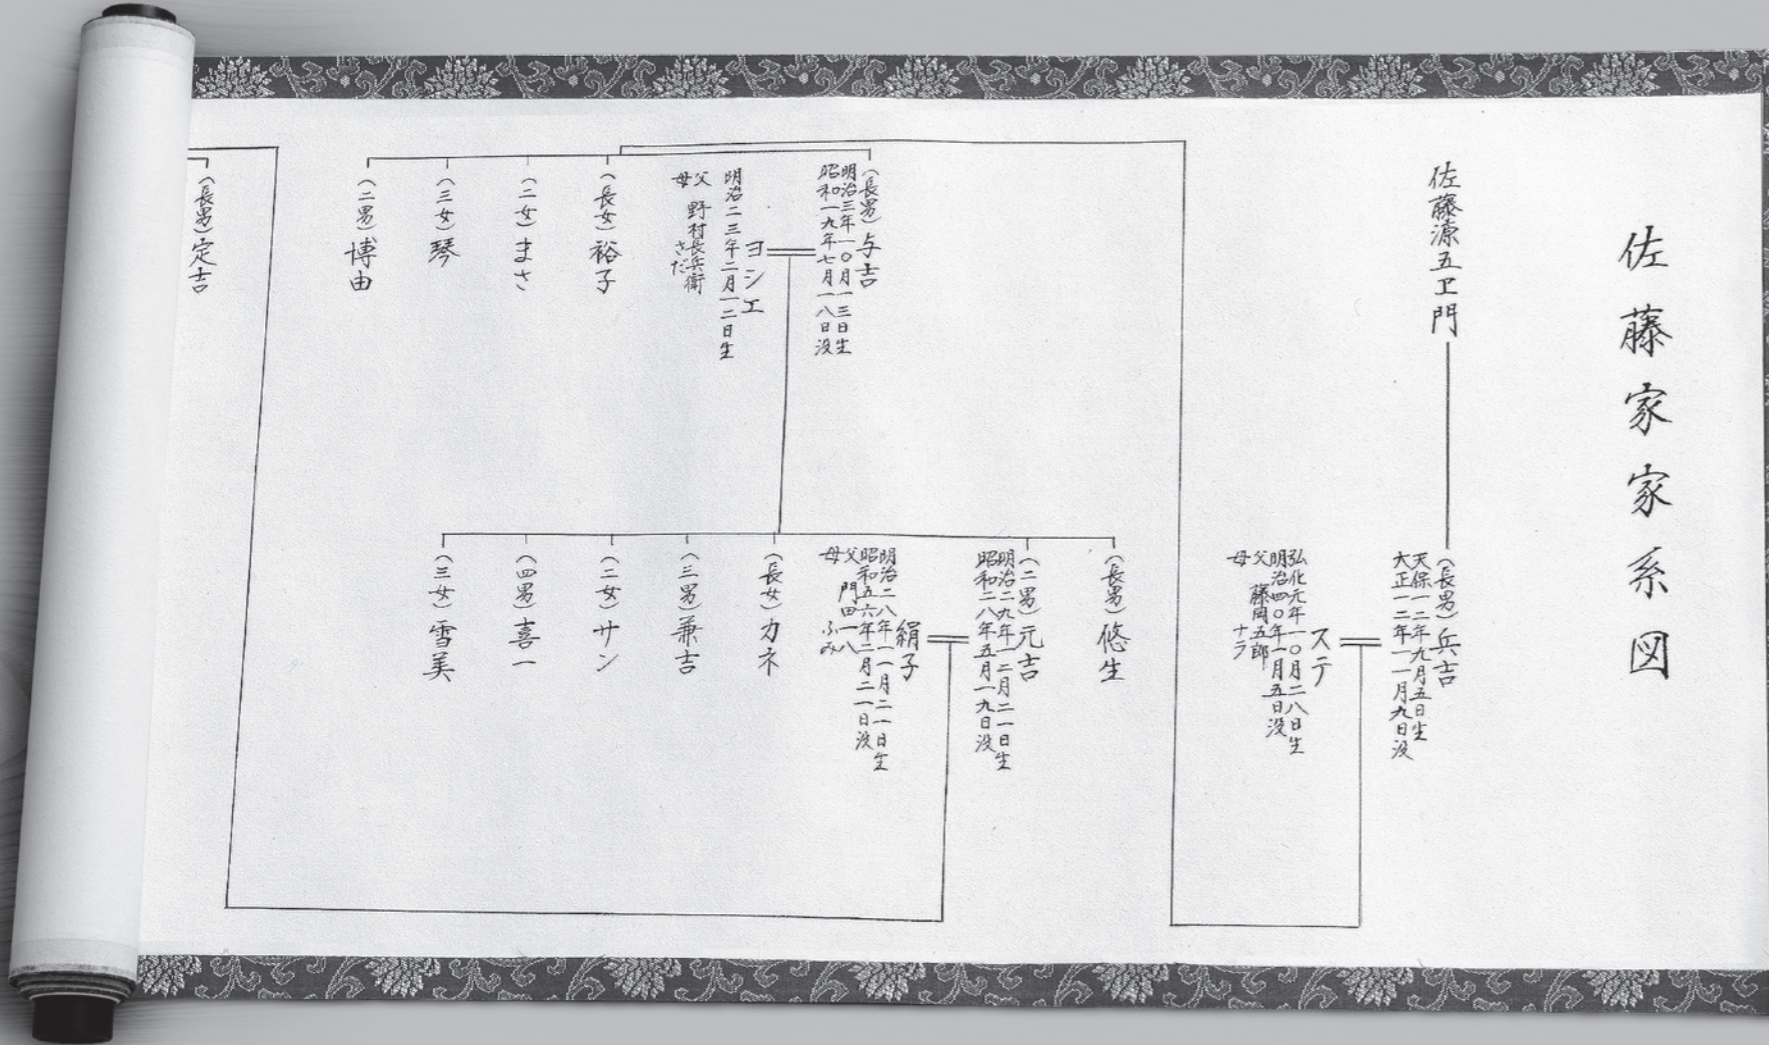 佐藤家家系図
佐藤源五ヱ門
(長男)兵吉
天保一二年九月五日生
大正一二年一一月九日没
ステ
弘化元年一〇月二八日生
明治四〇年一月五日没
父 藤岡五郎
母 ナラ
(長男)与吉
明治三年一〇月一三日生
昭和一九年七月一八日没
ヨシエ
明治二三年二月一二日生
父 野村長兵衛
母 さだ
(長女)裕子
(二女)まさ
(三女)琴
(二男)博由
(長男)悠生
(二男)元吉
明治二九年一二月二一日生
昭和二八年五月一九日没
絹子
明治二八年一一月二一日生
昭和五六年二月二一日没
父 門田一八
母 ふみ
(長女)カネ
(三男)兼吉
(二女)サン
(四男)喜一
(三女)雪美
(長男)定吉